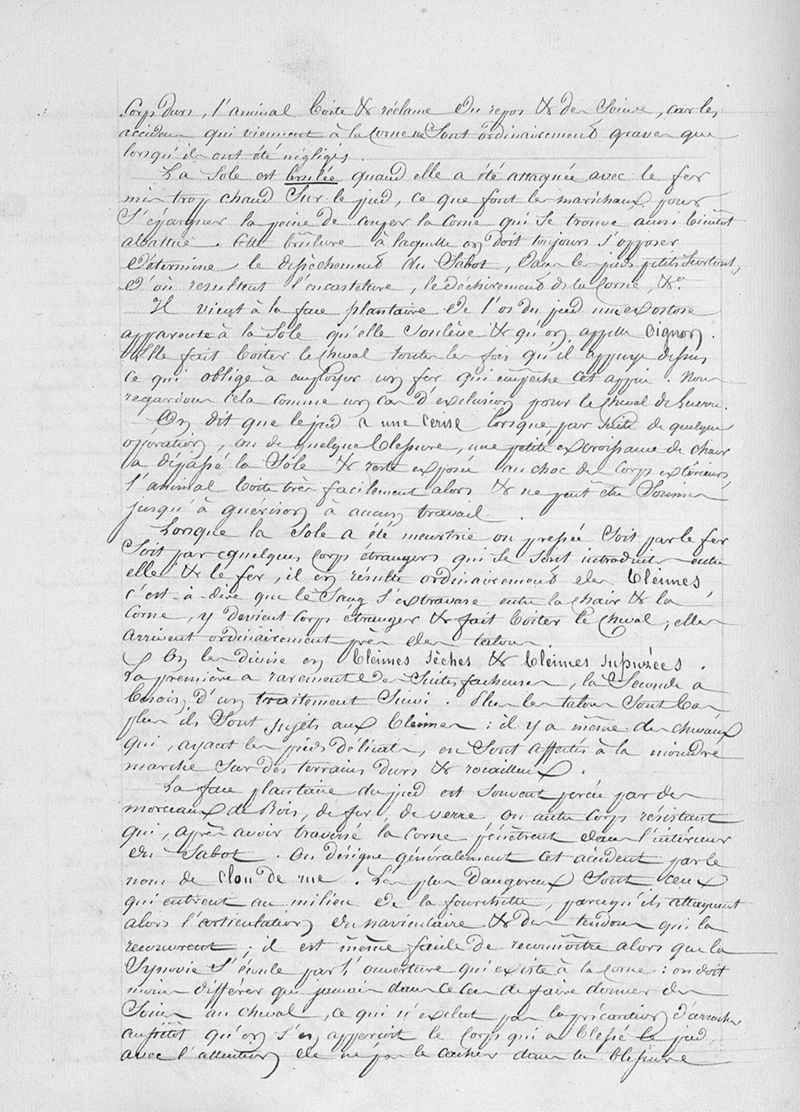 Corps durs, l'animal boite & réclame du repos & des soins, car les
accidens qui viennent à la Corne ne sont ordinairement graves que
lorsqu'ils ont été négligés.
La Sole est brulée quand elle a été attaquée avec le fer
mis trop chaud sur le pied, ce que font les maréchaux pour
s'épargner la peine de couper la Corne qui se trouve ainsi bientôt
abattue. Cette brûlure à laquelle on doit toujours s'opposer
détermine le dessèchement du Sabot, dans les pieds petits surtout,
d'où résultent l'encastelure, le déchirement de la Corne, &a
Il vient à la face plantaire de l'os du pied une exostose
apparente à la Sole qu'elle soulève & qu'on appelle oignon.
Elle fait boiter le cheval toutes les fois qu'il appuye dessus
ce qui oblige à employer un fer qui empêche cet appui. Nous
regardons cela comme un cas d'exclusion pour le cheval de guerre.
On dit que le pied a une cerise lorsque par suite de quelque
opération, ou de quelque blessure, une petite excroissance de chair
a dépassé la Sole & reste exposée au choc des Corps extérieurs
l'animal boite très facilement alors & ne peut être soumis
jusqu'à guérison à aucun travail.
Lorsque la Sole a été meurtrie ou pressée soit par le fer
soit par quelques corps étrangers qui se sont introduits entre
elle & le fer, il en résulte ordinairement des bleimes
c'est-à-dire que le Sang s'extravase entre la chair & la
Corne, y devient corps étranger & fait boiter le cheval; elles
arrivent ordinairement près des talons.
On les divise en bleimes sèches & bleimes supurées.
La première a rarement des suites facheuses, la seconde a
besoin d'un traitement suivi. Plus les talons sont bas
plus ils sont sujets aux bleimes: il y a même des chevaux
qui, ayant les pieds délicats, en sont affectés à la moindre
marche sur des terrains durs & rocailleux.
La face plantaire du pied est souvent percée par des
morceaux de Bois, de fer, de verre ou autre corps résistant
qui, après avoir traversé la Corne pénètrent dans l'intérieur
du Sabot. On désigne généralement cet accident par le
nom de clou de rue. Les plus dangereux sont ceux
qui entrent au milieu de la fourchette, parcequ'ils attaquent
alors l'articulation du naviculaire & des tendons qui la
recouvrent; il est même facile de reconnoître alors que la
Synovie s'écoule par l'ouverture qui existe à la Corne: on doit
moins différer que jamais dans ce cas de faire donner des
soins au cheval, ce qui n'exclut pas la précaution d'arracher
aussitôt qu'on s'en apperçoit le corps qui a blessé le pied,
avec l'attention de ne pas le casser dans la blessure